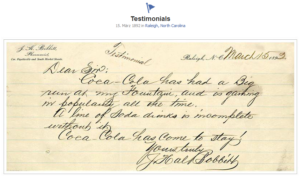 Testimonials
15, Mars 1892 in Raleigh, North Carolina
J. Hal Bobbitt,
Testimonial
Raleigh, N.C. March 15 1892
Dear Sir:
Coca-Cola has had a Big
run at my Fountain, and is gaining
in popularity all the time.
A line of Soda drinks is incomplete
without it.
Coca-Cola has come to stay!
Yours truly
J Hal Bobbitt